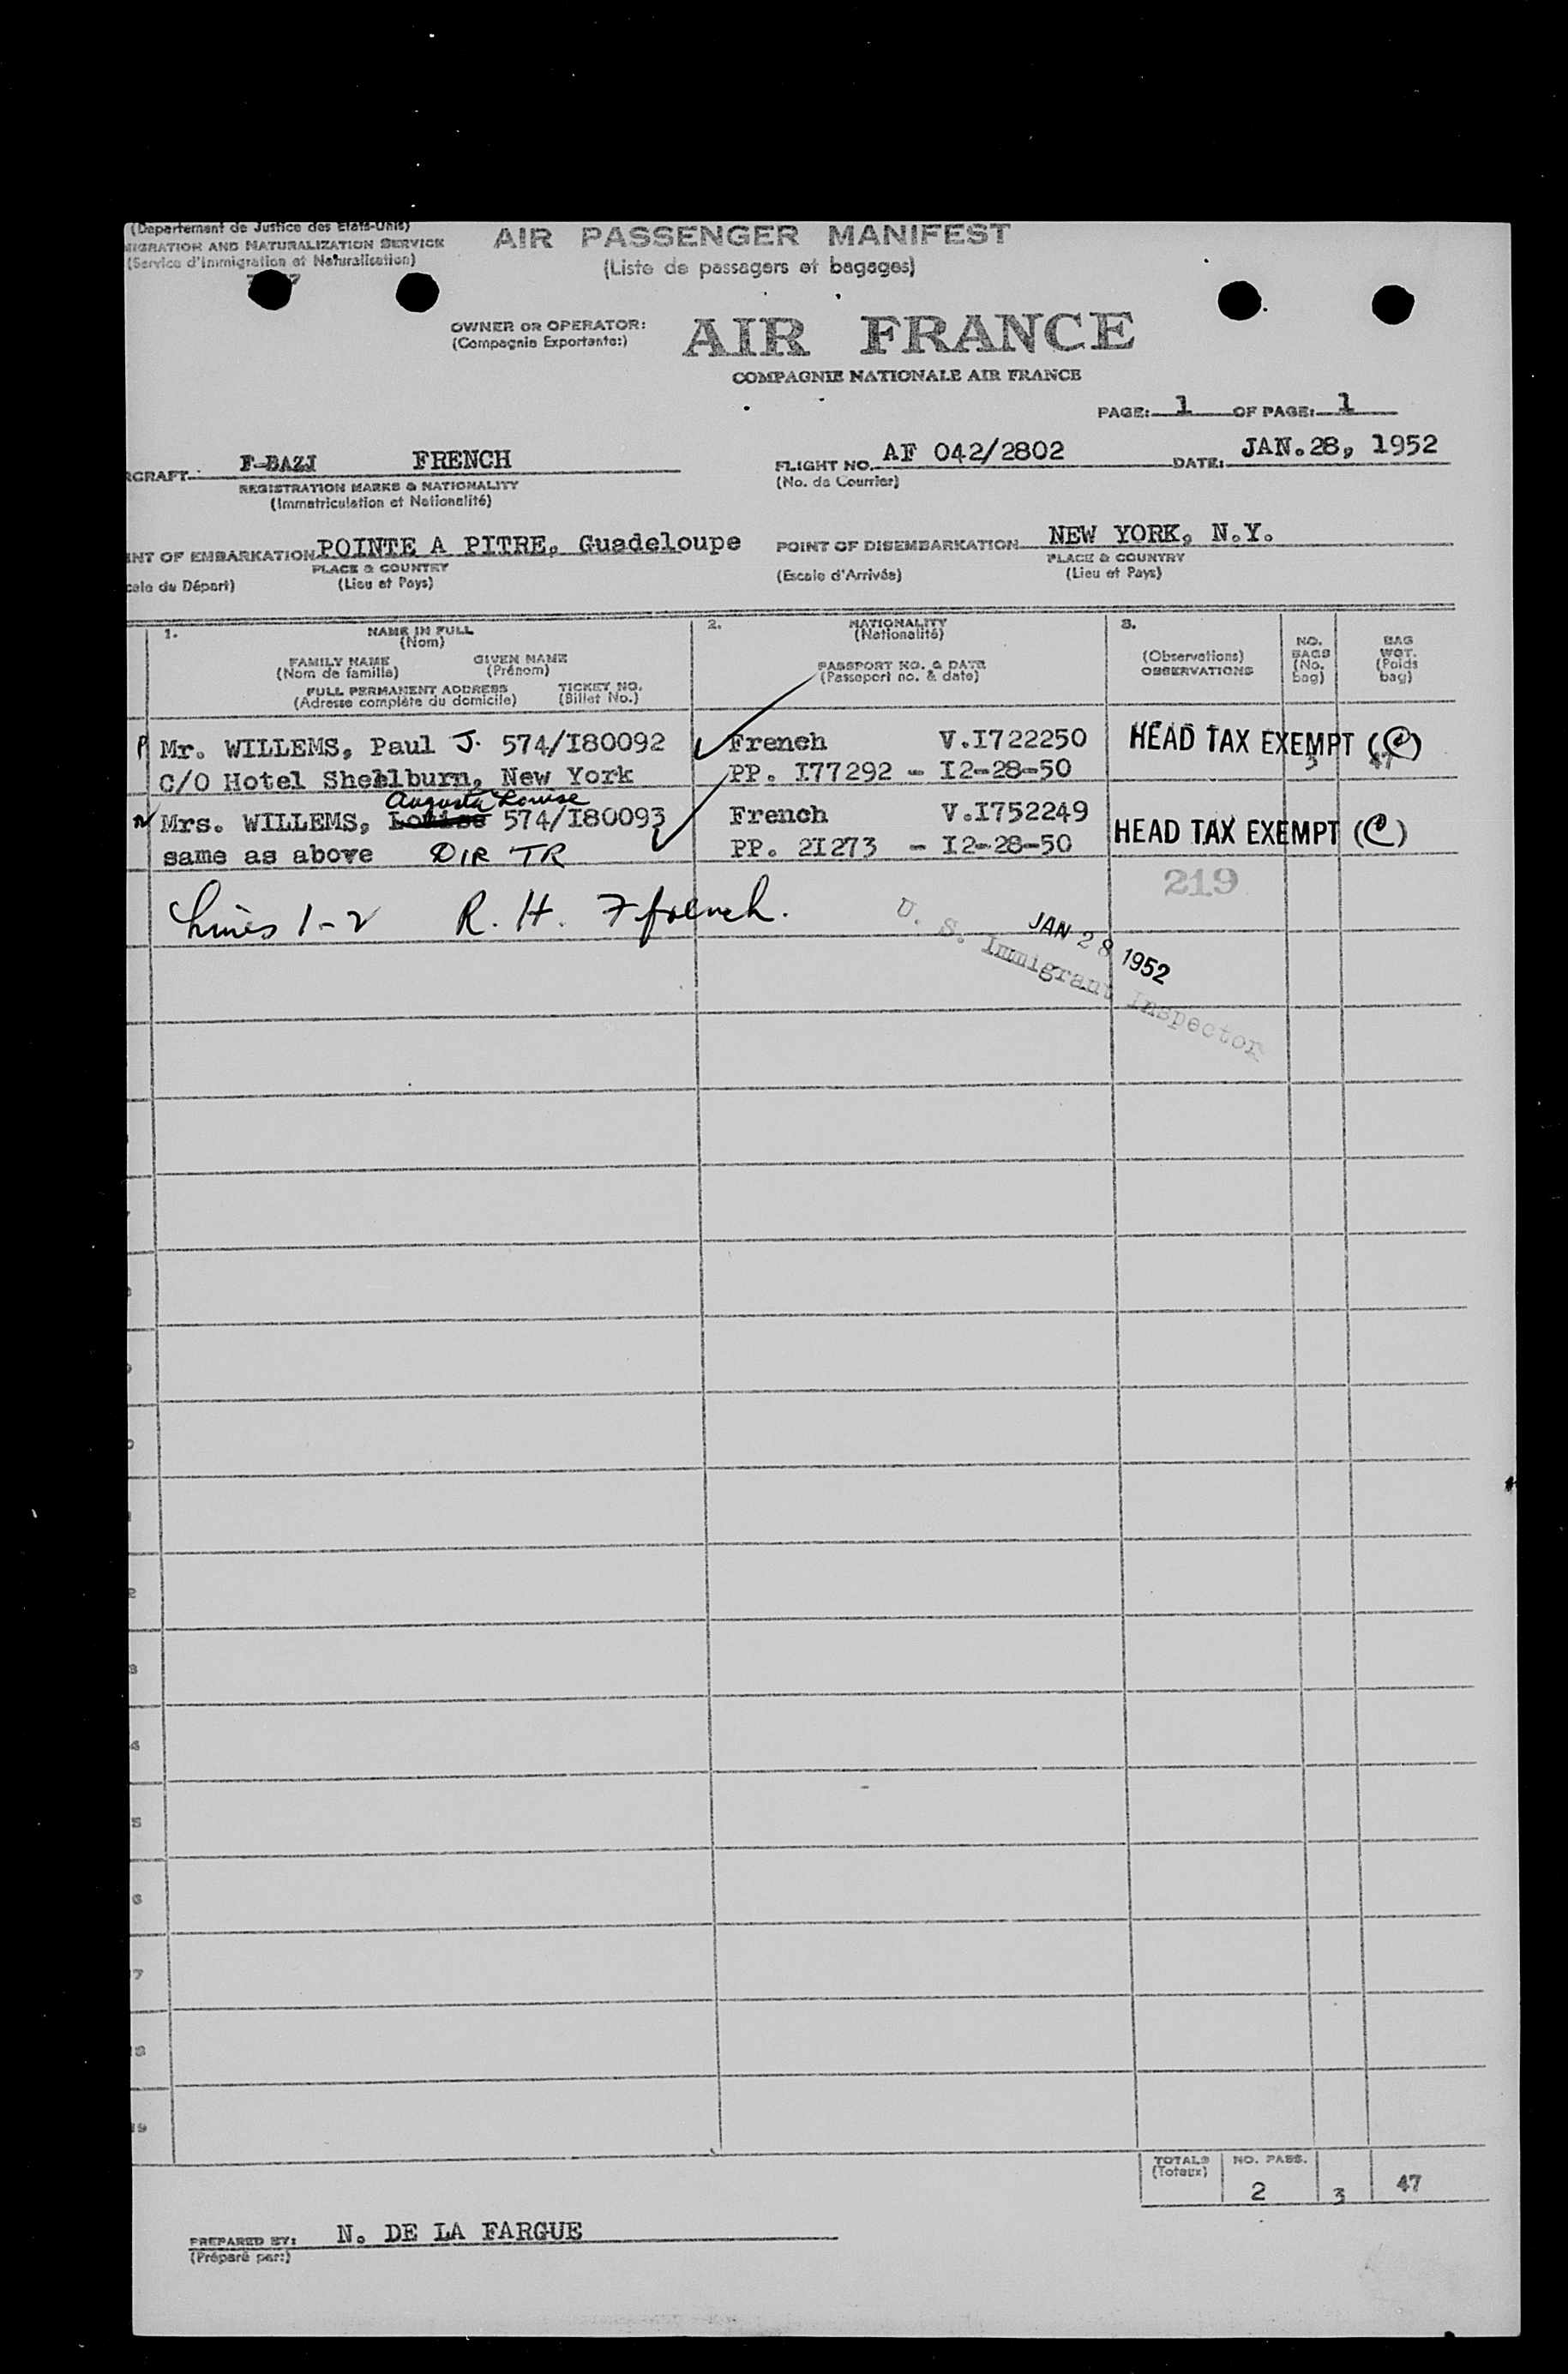 (Departement de Justice des Etats-Unis)
MIGRATION AND NATURALIZATION SERVICE
(Service d'Immigration et Naturalisation)
AIR PASSENGER MANIFEST
(Liste de passagers et bagages)
OWNER OR OPERATOR:
(Compagnie Exportante:)
AIR FRANCE
COMPAGNIE NATIONALE AIR FRANCE
PAGE: 1 OF PAGE: 1
RCRAFT: F-BAZI FRENCH
REGISTRATION MARKS & NATIONALITY
(Immatriculation et Nationalité)
FLIGHT NO. AF 042/2802 DATE: JAN.28, 1952
(No. de Courrier)
INT OF EMBARKATION POINTE A PITRE, Guadeloupe
PLACE & COUNTRY
cale du Départ) (Lieu et Pays)
POINT OF DISEMBARKATION NEW YORK, N.Y.
PLACE & COUNTRY
(Escale d'Arrivée) (Lieu et Pays)
1. NAME IN FULL
(Nom)
FAMILY NAME GIVEN NAME
(Nom de famille) (Prénom)
FULL PERMANENT ADDRESS TICKET NO.
(Adresse complète du domicile) (Billet No.)
2. NATIONALITY
(Nationalité)
PASSPORT NO. & DATE
(Passeport no. & date)
3.
(Observations)
OBSERVATIONS
NO.
BAGS
(No.
bag)
BAG
WGT.
(Poids
bag)
Mr. WILLEMS, Paul J. 574/I80092 French V.I722250 HEAD TAX EXEMPT (C)
3 47
C/O Hotel Shellburn, New York PP. I77292 - I2-28-50
Augusta Louise
Mrs. WILLEMS, Louise 574/I80093 French V.I752249 HEAD TAX EXEMPT (C)
same as above DIR TR PP. 2I273 - I2-28-50
219
Lines 1-2 R. H. Ffrench.
JAN 28 1952
U. S. Immigrant Inspector
2
3
4
5
6
7
8
19
TOTALS NO. PASS.
(Totaux)
2 3 47
PREPARED BY: N. DE LA FARGUE
(Préparé par:)